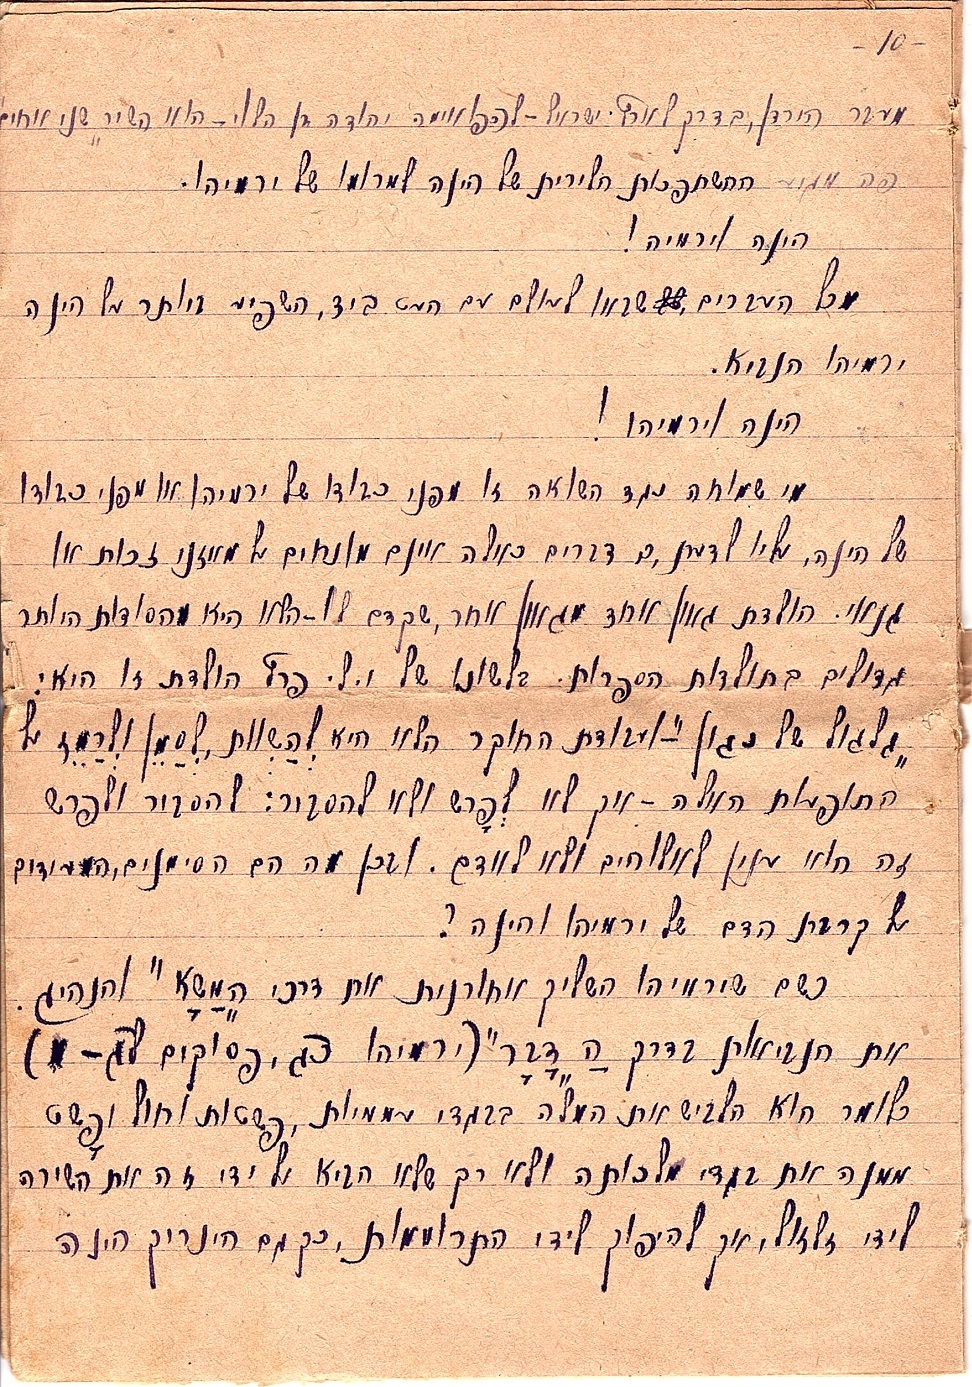 - 10 -
מעבר הירדן, בדרך לארץ-ישראל - יהודה הלוי - הוא השיר "שני אוחים
פה מגיע ההשתפכות הלירית של הינה למרומו של ירמיהו.
הינה וירמיה!
מכל העברים, שבאו לעולם עם העט ביד, השפיע ביותר על הינה
ירמיהו הנביא.
הינה וירמיהו!
מי שמוחה נגד השואה זו מפני כבודו של ירמיהו או מפני כבודו
של הינה, עליו לדעת, כי דברים כאלה אינם מונחים על מאזני זכות או
גנאי. הולדת גאון אחד מגאון אחר, שקדם לו - הלוא היא מהסודות היותר
גדולים בתולדות הספרות. בלשונו של י.ל. פרץ הולדת זו היא:
"גלגול של נגון" - ועבודת החוקר הלוא היא לְהַשְׁווֹת, לְסַמֵּן וּלְרַמֵּז על
התופעות האלה - אך לא לְפָרש ולא להסביר: להסביר ולפרש
זה הוא ענין לאלוהים ולא לאדם. ובכן מה הם הסימנים, המעידים
על קרבת הדם של ירמיהו והינה?
כשם שירמיהו השליך אחורנית את דרכי "הַמַשָׂא" והנהיג
את הנביאות בדרך הַ"דָבָר" (ירמיהו כג, פסוקים לג - מ)
כלומר הוא הלביש את המלה בבגדי עממיות, פשטות וחול ופָשט
ממנה את בגדי מלכותה ולא רק שלא הביא על ידי זה את השירה
לידי זלזול, אך להיפוך לידי התרוממות, כך גם היינריך הינה